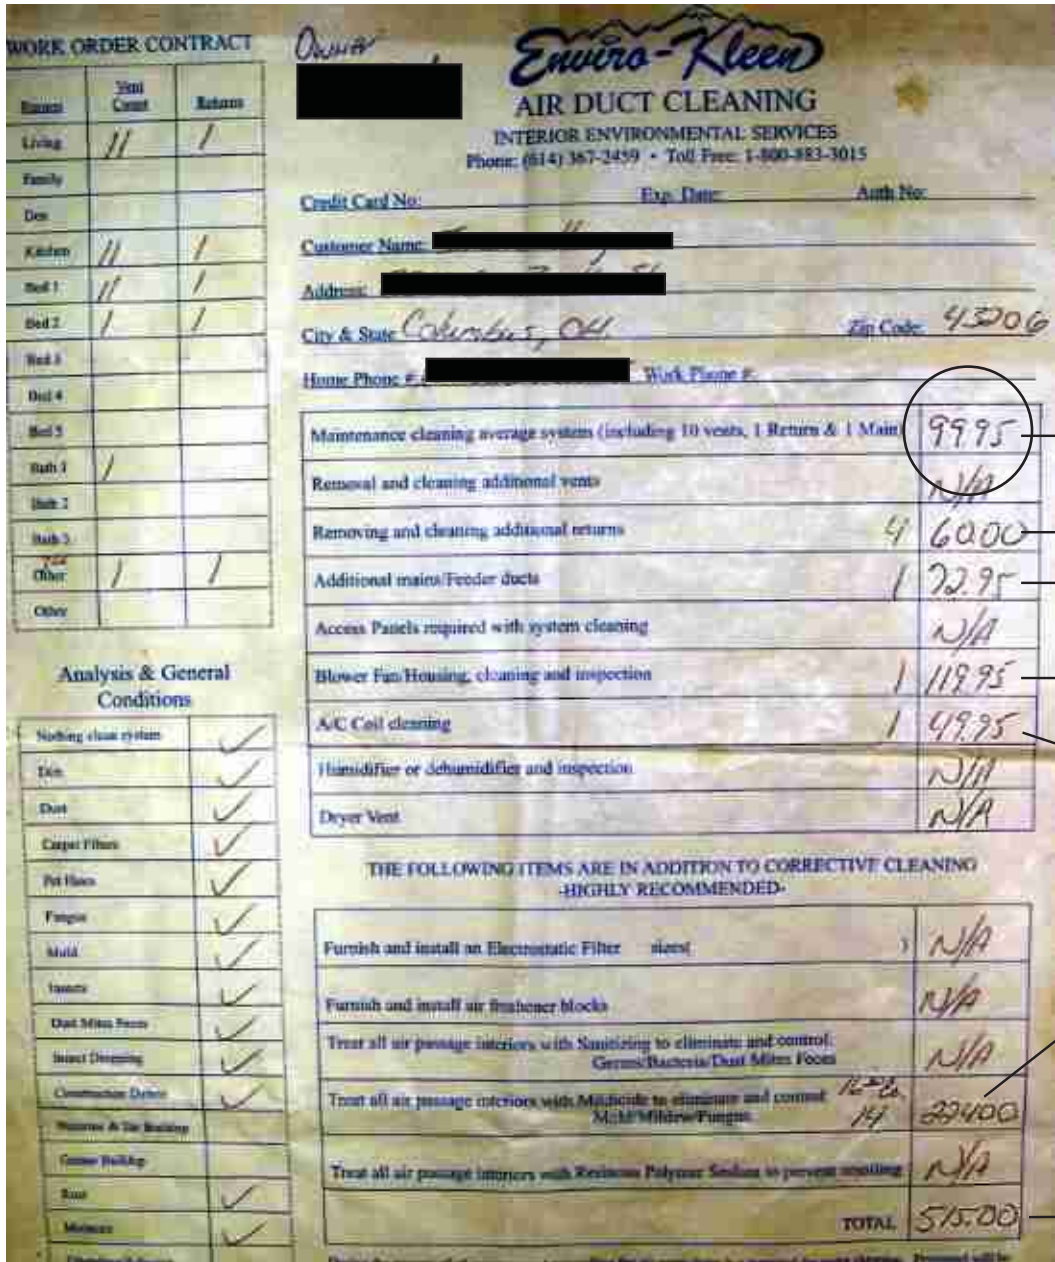 WORK ORDER CONTRACT
Rooms Vent Count Returns
Living 11 1
Family
Den
Kitchen 11 1
Bed 1 11 1
Bed 2 1 1
Bed 3
Bed 4
Bed 5
Bath 1 1
Bath 2
Bath 3
Other 1 1
Other
Analysis & General
Conditions
Nothing clean system ✓
Dirt ✓
Dust ✓
Carpet Fibers ✓
Pet Hairs ✓
Fungus ✓
Mold ✓
Insects ✓
Dust Mites Feces ✓
Insect Dropping ✓
Construction Debris ✓
Nicotine & Tar Buildup
Grease Buildup
Rust ✓
Moisture ✓
Owner
Enviro-Kleen
AIR DUCT CLEANING
INTERIOR ENVIRONMENTAL SERVICES
Phone: (614) 367-2459 • Toll Free: 1-800-883-3015
Credit Card No: Exp. Date: Auth No:
Customer Name:
Address:
City & State Columbus, OH Zip Code: 43206
Home Phone #: Work Phone #:
Maintenance cleaning average system (including 10 vents, 1 Return & 1 Main) 99.95
Removal and cleaning additional vents N/A
Removing and cleaning additional returns 4 60.00
Additional mains/Feeder ducts 1 72.95
Access Panels required with system cleaning N/A
Blower Fan/Housing, cleaning and inspection 1 119.95
A/C Coil cleaning 1 49.95
Humidifier or dehumidifier and inspection N/A
Dryer Vent N/A
THE FOLLOWING ITEMS ARE IN ADDITION TO CORRECTIVE CLEANING
-HIGHLY RECOMMENDED-
Furnish and install an Electrostatic Filter sizes( ) N/A
Furnish and install air freshener blocks N/A
Treat all air passage interiors with Sanitizing to eliminate and control:
Germs/Bacteria/Dust Mites Feces N/A
Treat all air passage interiors with Mildicide to eliminate and control:
Mold/Mildew/Fungus 14 224.00
Treat all air passage interiors with Resinous Polymer Sealant to prevent N/A
TOTAL 515.00